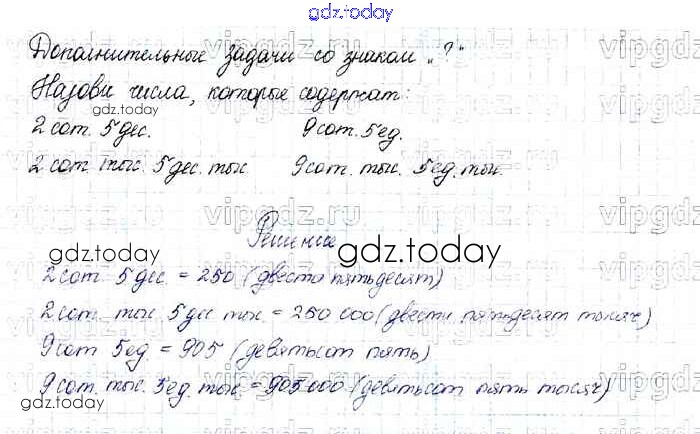 gdz.today
Дополнительные задачи со знаком „?"
Назови числа, которые содержат:
gdz.today
2 сот. 5 дес. 9 сот. 5 ед.
2 сот. тыс. 5 дес. тыс. 9 сот. тыс. 5 ед. тыс.
Решение
gdz.today gdz.today
2 сот 5 дес = 250 (двести пятьдесят)
2 сот тыс. 5 дес тыс = 250 000 (двести пятьдесят тысяч)
9 сот 5 ед = 905 (девятьсот пять)
9 сот. тыс. 5 ед. тыс = 905 000 (девятьсот пять тысяч)
gdz.today gdz.today